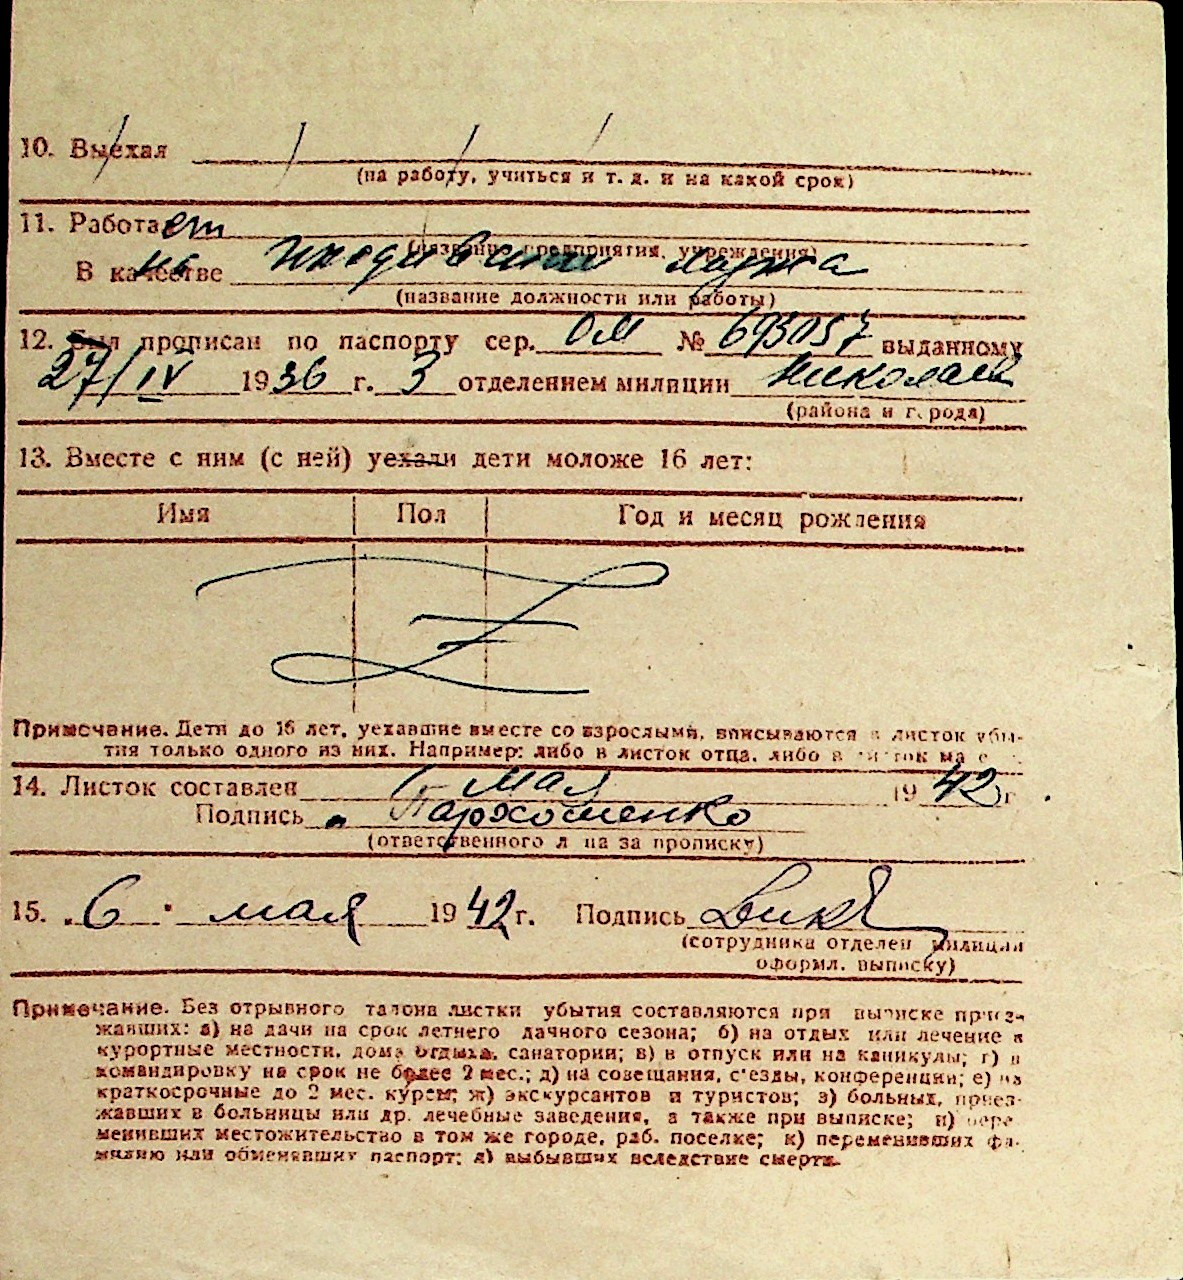 10. Выехал
(на работу, учиться и т. д. и на какой срок)
11. Работает
(название предприятия, учреждения)
В качестве на иждивении мужа
(название должности или работы)
12. Был прописан по паспорту сер. ОМ № 693057 выданному
27/IV 1936 г. 3 отделением милиции Николаев
(района и города)
13. Вместе с ним (с ней) уехали дети моложе 16 лет:
Имя Пол Год и месяц рождения
Примечание. Дети до 16 лет, уехавшие вместе со взрослыми, вписываются в листок убы-
тия только одного из них. Например: либо в листок отца, либо в листок ма е
14. Листок составлен 6 мая 1942 г
Подпись Пархоменко
(ответственного л ца за прописку)
15. 6 мая 1942 г. Подпись
(сотрудника отделен милиции
оформл. выписку)
Примечание. Без отрывного талона листки убытия составляются при выписке приез-
жавших: а) на дачи на срок летнего дачного сезона; б) на отдых или лечение в
курортные местности, дома отдыха, санатории; в) в отпуск или на каникулы; г) в
командировку на срок не более 2 мес.; д) на совещания, с'езды, конференции; е) на
краткосрочные до 2 мес. курсы; ж) экскурсантов и туристов; з) больных, приез-
жавших в больницы или др. лечебные заведения, а также при выписке; и) пере
менивших местожительство в том же городе, раб. поселке; к) переменивших фа-
милию или обменявших паспорт; л) выбывших вследствие смерти.